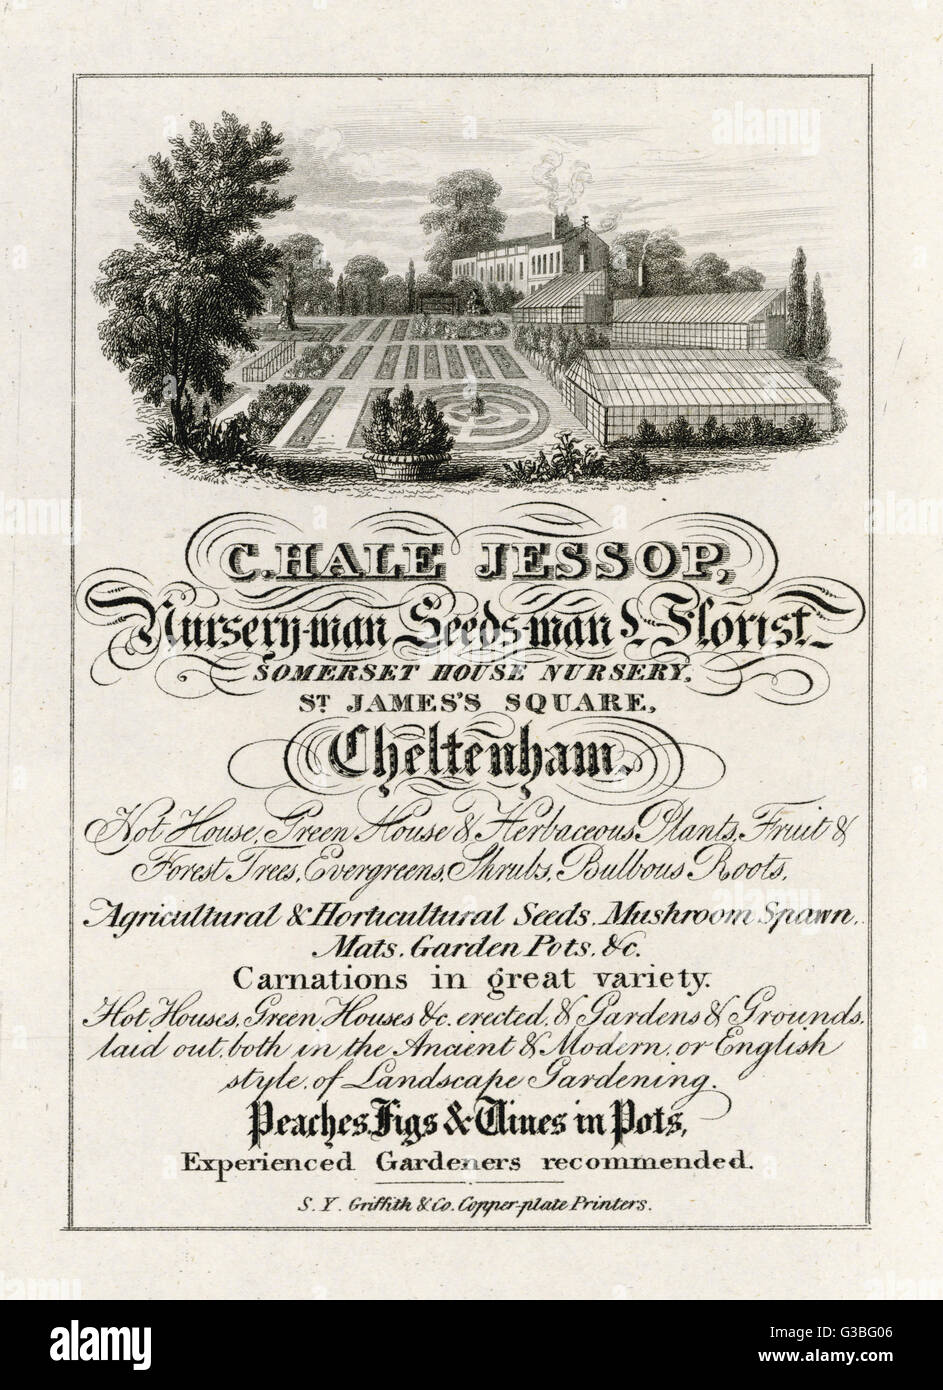 C. HALE JESSOP,
Nursery-man Seeds-man & Florist
SOMERSET HOUSE NURSERY,
ST JAMES'S SQUARE,
Cheltenham.
Hot House, Green House & Herbaceous Plants, Fruit &
Forest Trees, Evergreens, Shrubs, Bulbous Roots,
Agricultural & Horticultural Seeds, Mushroom Spawn,
Mats, Garden Pots, &c.
Carnations in great variety.
Hot Houses, Green Houses &c. erected, & Gardens & Grounds,
laid out, both in the Ancient & Modern, or English
style, of Landscape Gardening.
Peaches, Figs & Vines in Pots,
Experienced Gardeners recommended.
S. Y. Griffith & Co. Copper-plate Printers.
alamy
Image ID: G3BG06
www.alamy.com